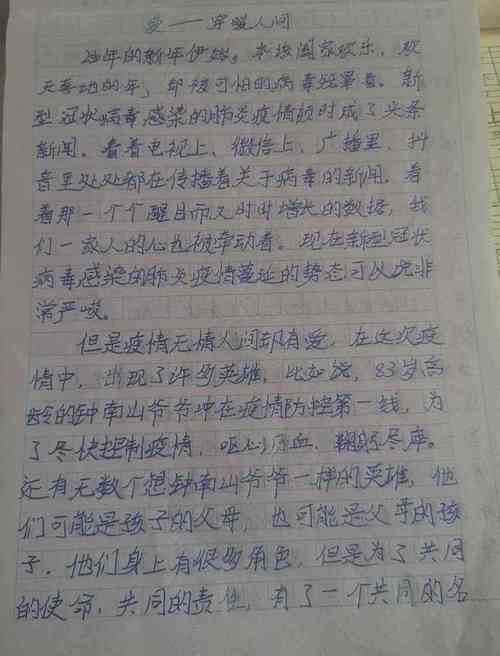 爱——穿暖人间
20年的新年伊始。本该阖家欢乐，欢
天喜地的年，却被可怕的病毒笼罩着。新
型冠状病毒感染的肺炎疫情顿时成了头条
新闻。看着电视上、微信上、广播里、抖
音里处处都在传播着关于病毒的新闻，看
着那一个个醒目而又时时增长的数据，我
们一家人的心也被牵动着。现在新型冠状
病毒感染的肺炎疫情蔓延的势态可以说非
常严峻。
但是疫情无情人间却有爱，在这次疫
情中，出现了许多英雄，比如说，83岁高
龄的钟南山爷爷冲在疫情防控第一线，为
了尽快控制疫情，呕心沥血，鞠躬尽瘁。
还有无数个想钟南山爷爷一样的英雄，他
们可能是孩子的父母，也可能是父母的孩
子，他们身上有很多角色，但是为了共同
的使命，共同的责任，有了一个共同的名